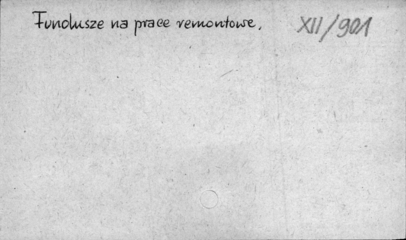 Fundusze na prace remontowe, XII/901